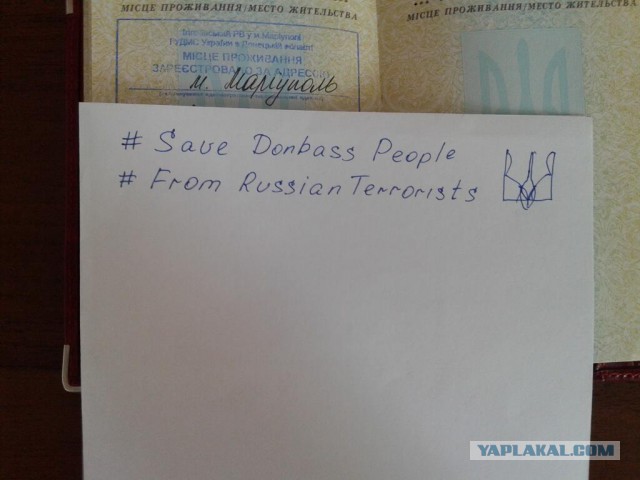 МІСЦЕ ПРОЖИВАННЯ/МЕСТО ЖИТЕЛЬСТВА
МІСЦЕ ПРОЖИВАННЯ/МЕСТО ЖИТЕЛЬСТВА
РВ у м. Маріуполі
ГУДМС України в Донецькій області
МІСЦЕ ПРОЖИВАННЯ
ЗАРЕЄСТРОВАНО ЗА АДРЕСОЮ
м. Маріуполь
# Save Donbass People
# From Russian Terrorists
YAPLAKAL.COM